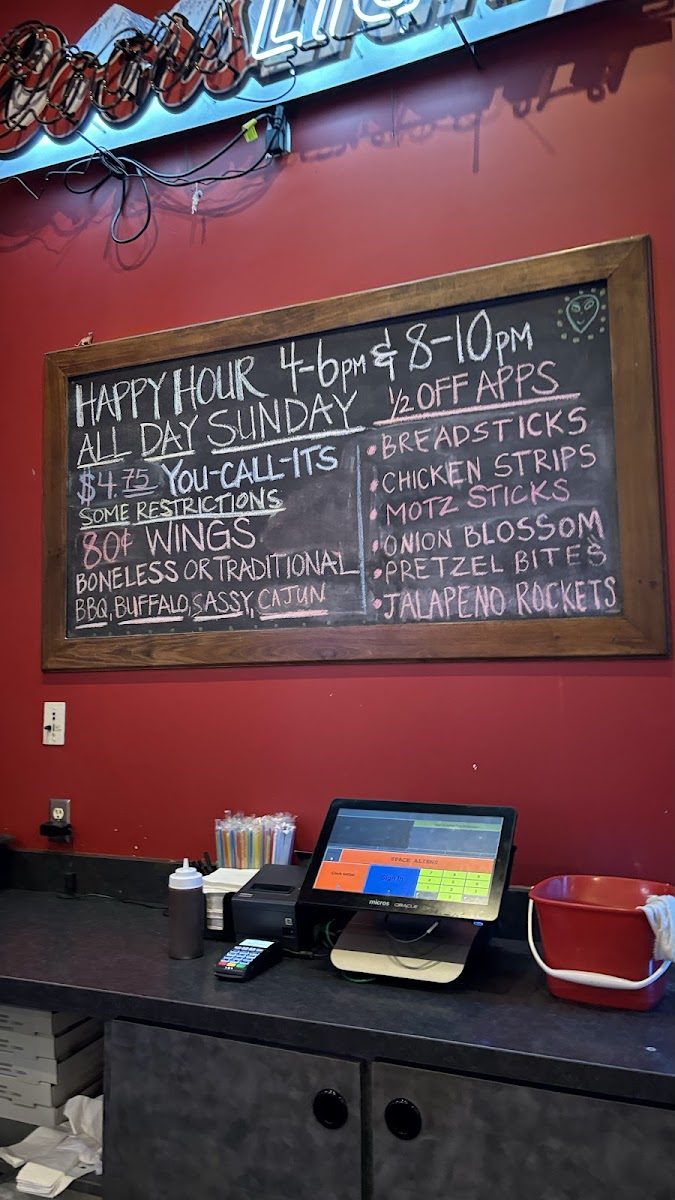 Coors LIGHT
HAPPY HOUR 4-6PM & 8-10PM
ALL DAY SUNDAY
$4.75 YOU-CALL-ITS
SOME RESTRICTIONS
80¢ WINGS
BONELESS OR TRADITIONAL
BBQ, BUFFALO, SASSY, CAJUN
1/2 OFF APPS
• BREADSTICKS
• CHICKEN STRIPS
• MOTZ STICKS
• ONION BLOSSOM
• PRETZEL BITES
• JALAPENO ROCKETS
SPACE ALIENS
micros ORACLE